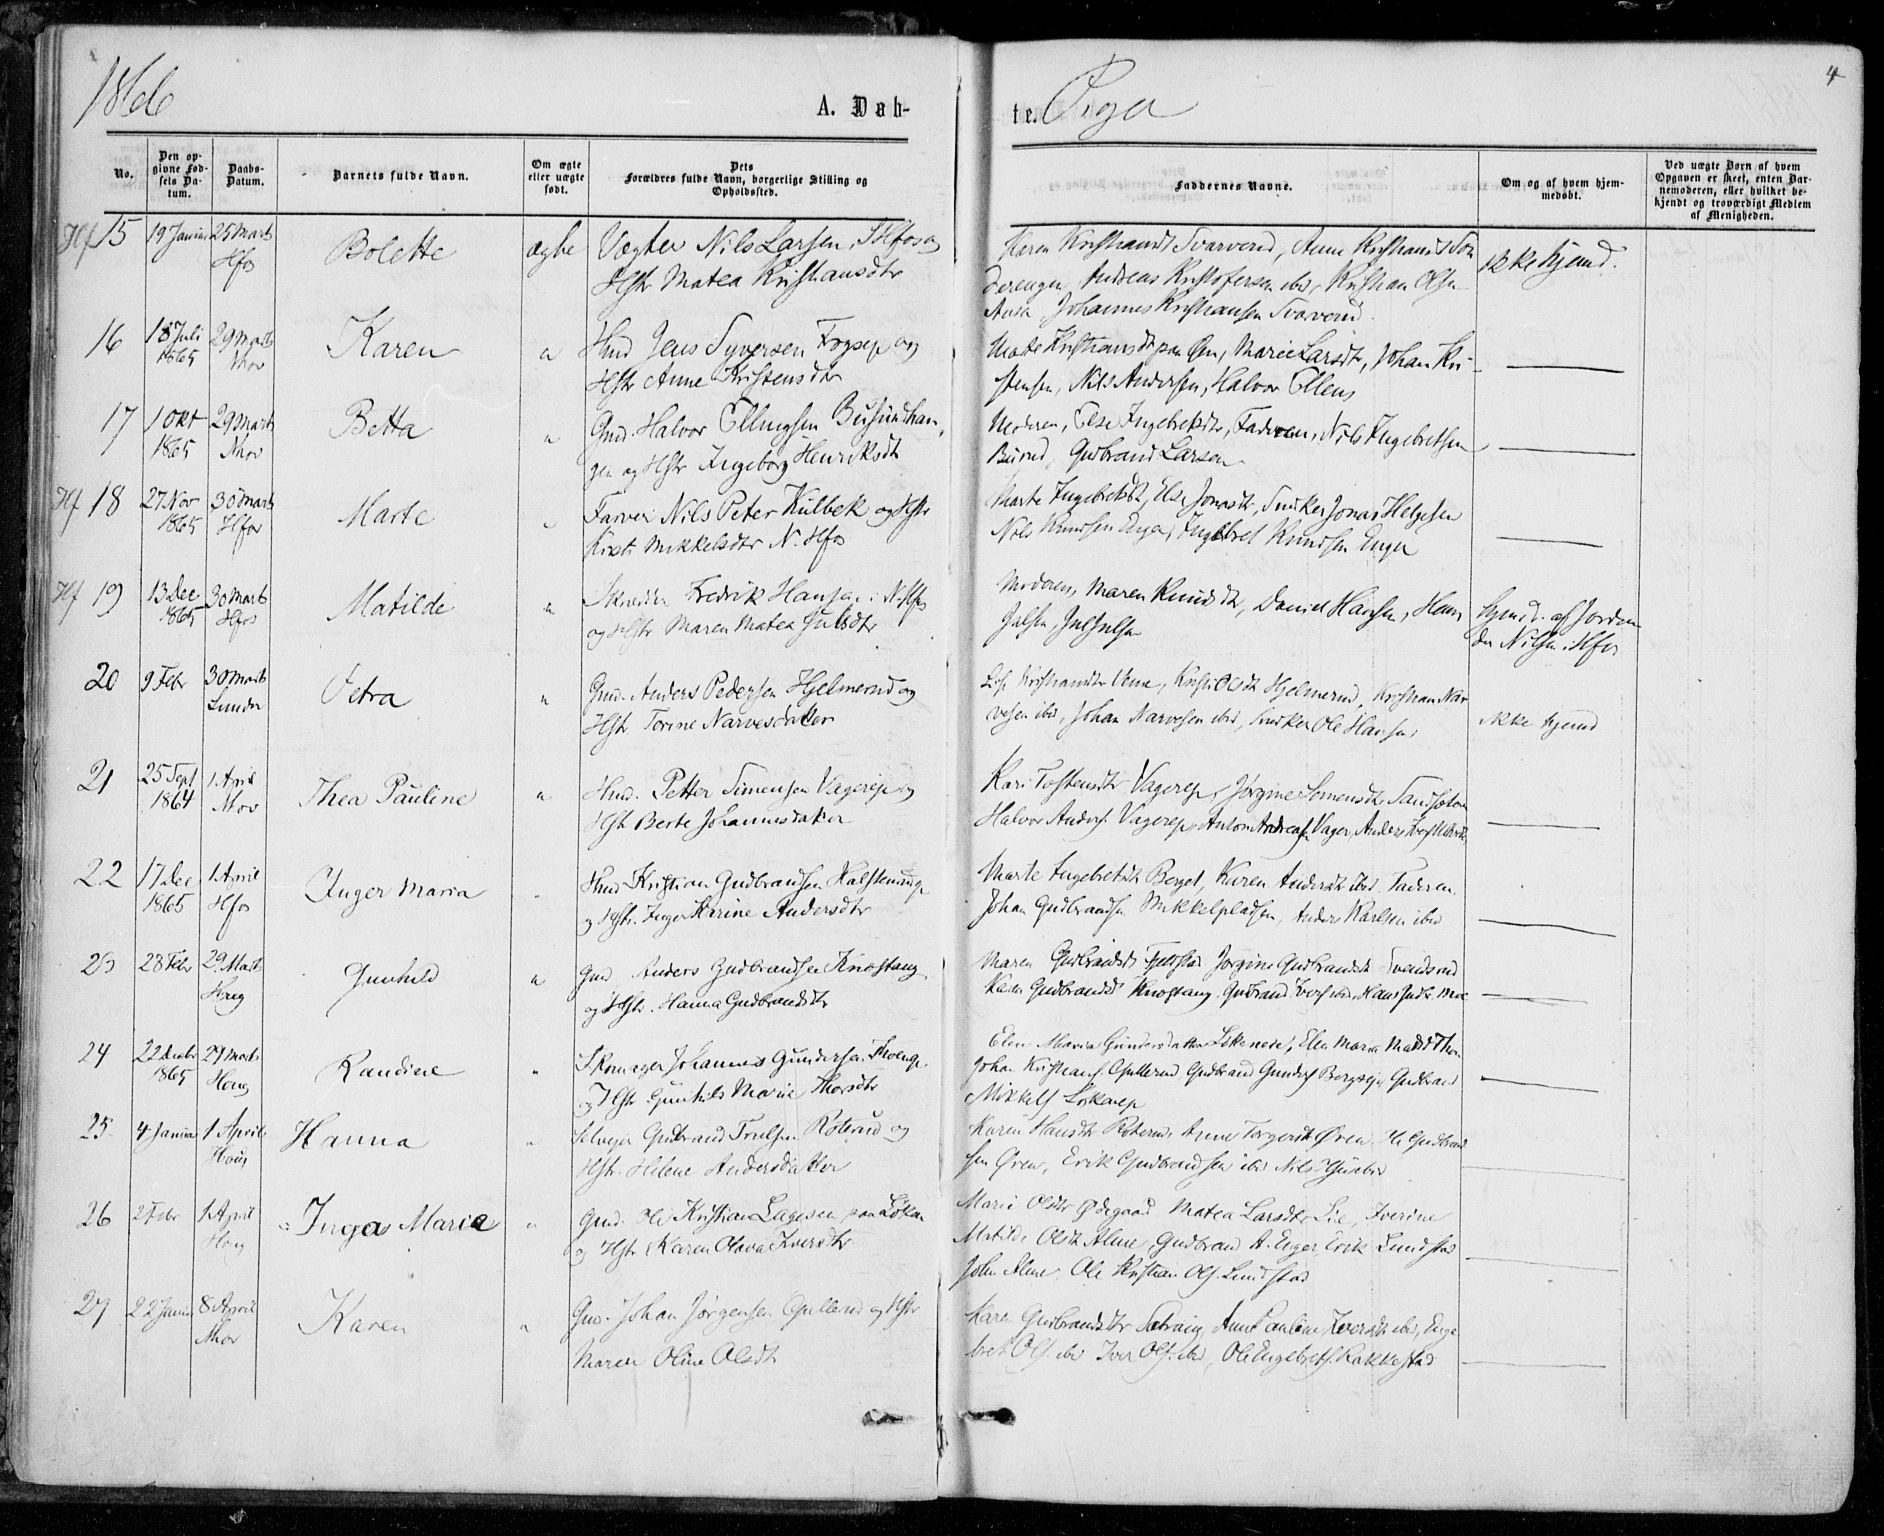 1866
A. Døb-
te. Piger
4
No.
Den op-
givne Fød-
sels Da-
tum.
Daabs-
Datum.
Barnets fulde Navn.
Om ægte
eller uægte
født.
Dets
Forældres fulde Navn, borgerlige Stilling og
Opholdssted.
Faddernes Navne.
Om og af hvem hjem-
medøbt.
Ved uægte Børn af hvem
Opgaven er skeet, enten Bar-
nemoderen, eller hvilket be-
kjendt og troværdigt Medlem
af Menigheden.
Hf 15 19 Januar 25 Marts
Hfos
Bolette
ægte
Vægter Nils Larsen, Hfos og
Hstr Matea Kristiansdtr
Karen Kristiansdt Svarverud, Anne Kristiansdt Søn
derengen, Andreas Kristofersen ibid, Kristian Olsen
Aasa, Johannes Kristiansen Svarverud
ikke hjemd.
16 18 Juli 1865 29 Marts
Nhov
Karen
"
Hmd Jens Syversen Fogsep og
Hstr Anne Kristensdtr
Mate Kristiansdt paa Øen, Marie Larsdt, Johan Kri-
stensen, Nils Andersen, Halvor Ellens
17 1 Okt 1865 29 Marts
Nhov
Betta
"
Gmd. Halvor Ellingsen Busundhau
gen og Hstr Ingeborg Henriksdt
Moderen, Else Ingebretsdtr, Faderen, Nils Ingebretsen
Busund, Gudbrand Larsen
Hf 18 27 Nov 1865 30 Marts
Hfos
Marte
"
Farver Nils Peter Kulbek og Hstr
Kirsti Mikkelsdtr N. Hfos
Marte Ingebretsdt, Else Jonasdt, Snilker Jonas Helgesen
Nils Knudsen Enger, Ingebret Knudsen Enger
Hf 19 13 Dec 1865 30 Marts
Hfos
Matilde
"
Skrædder Fredrik Hansen i N. Hfos
og Hstr Maren Matea Julsdtr
Moderen, Maren Knudsdt, Daniel Hansen, Hans
Julsen, Jul Julsen
hjemd. af Jordmo
der Nilsen i Hfos
20 9 Febr 30 Marts
Lunder
Petra
"
Gmd. Anders Pedersen Hjelmerud og
Hstr Torine Narvesdatter
Kristiansdtr Veme, Kristi Olsdt Hjelmerud, Kristian Nar
vesen ibid, Johan Narvesen ibid, Snilker Ole Hansen
ikke hjemd
21 25 Sept 1864 1 April
Nhov
Thea Pauline
"
Hmd. Petter Simensen Vagereje og
Hstr Berte Johannesdatter
Kari Tostensdtr Vagereje, Jørgine Simensdt Sandsetra
Halvor Anders. Vagereje, Anton Andreas. Vager, Anders
22 17 Dec 1865 1 April
Hfos
Inger Maria
"
Hmd Kristian Gudbrandsen
og Hstr. Inger Karine Andersdtr
Marte Ingebretsdt Berget, Karen Andersdt ibid, Faderen
Johan Gudbrandsen Mikkelpladsen, Anders Karlsen ibid
23 28 Febr 29 Marts
Haug
Gunhild
"
Gmd Anders Gudbrandsen Knestang
og Hstr. Hanna Gudbrandsdtr
Maren Gudbrandsdt Fjeldstad Jørgine Gudbrandsdt Svendsrud
Karen Gudbrandsdt Knestang, Gudbrand Ivers. ibid Hans Gudbr. Moe
24 22 Decbr 1865 29 Marts
Haug
Randine
"
Skomager Johannes Gundersen
og Hstr Gunhild Marie Thorsdtr
Elen Maria Gundersdatter Løkeneie, Elen Maria Madsdt Thor
Johan Kristians. Gullerud Gudbrand Gunders. Bergseje Gudbrand
Mikkels. Løkeneje
25 4 Januar 1 April
Haug
Hanna
"
Selvejer Gudbrand Trulsen Roterud og
Hstr. Helene Andersdatter
Karen Hansdt Roterud, Anne Torgersdt Øren, H. Gudbrand
sen Øren, Erik Gudbrandsen ibid Nils
26 2 Febr 1 April
Haug
Inga Maria
"
Gmd. Ole Kristian Lagesen paa Løken
og Hstr Karen Olava Iversdtr
Marie Olsdtr Ødegaard Matea Larsdtr Lie, Iverine
Matilde Olsdt Alme, Gudbrand A. Enger, Erik Lundstad
John Alme, Ole Kristian Ols. Lundstad
27 22 Januar 8 April
Nhov
Karen
"
Gmd. Johan Jørgensen Gullerud og Hstr
Maren Oline Olsdt
Karen Gudbrandsdtr Setrang, Anne Pauline Iversdt ibid, Enge
bret Ols. ibid Iver Ols. ibid, Ole Engebrets. Rakkestad